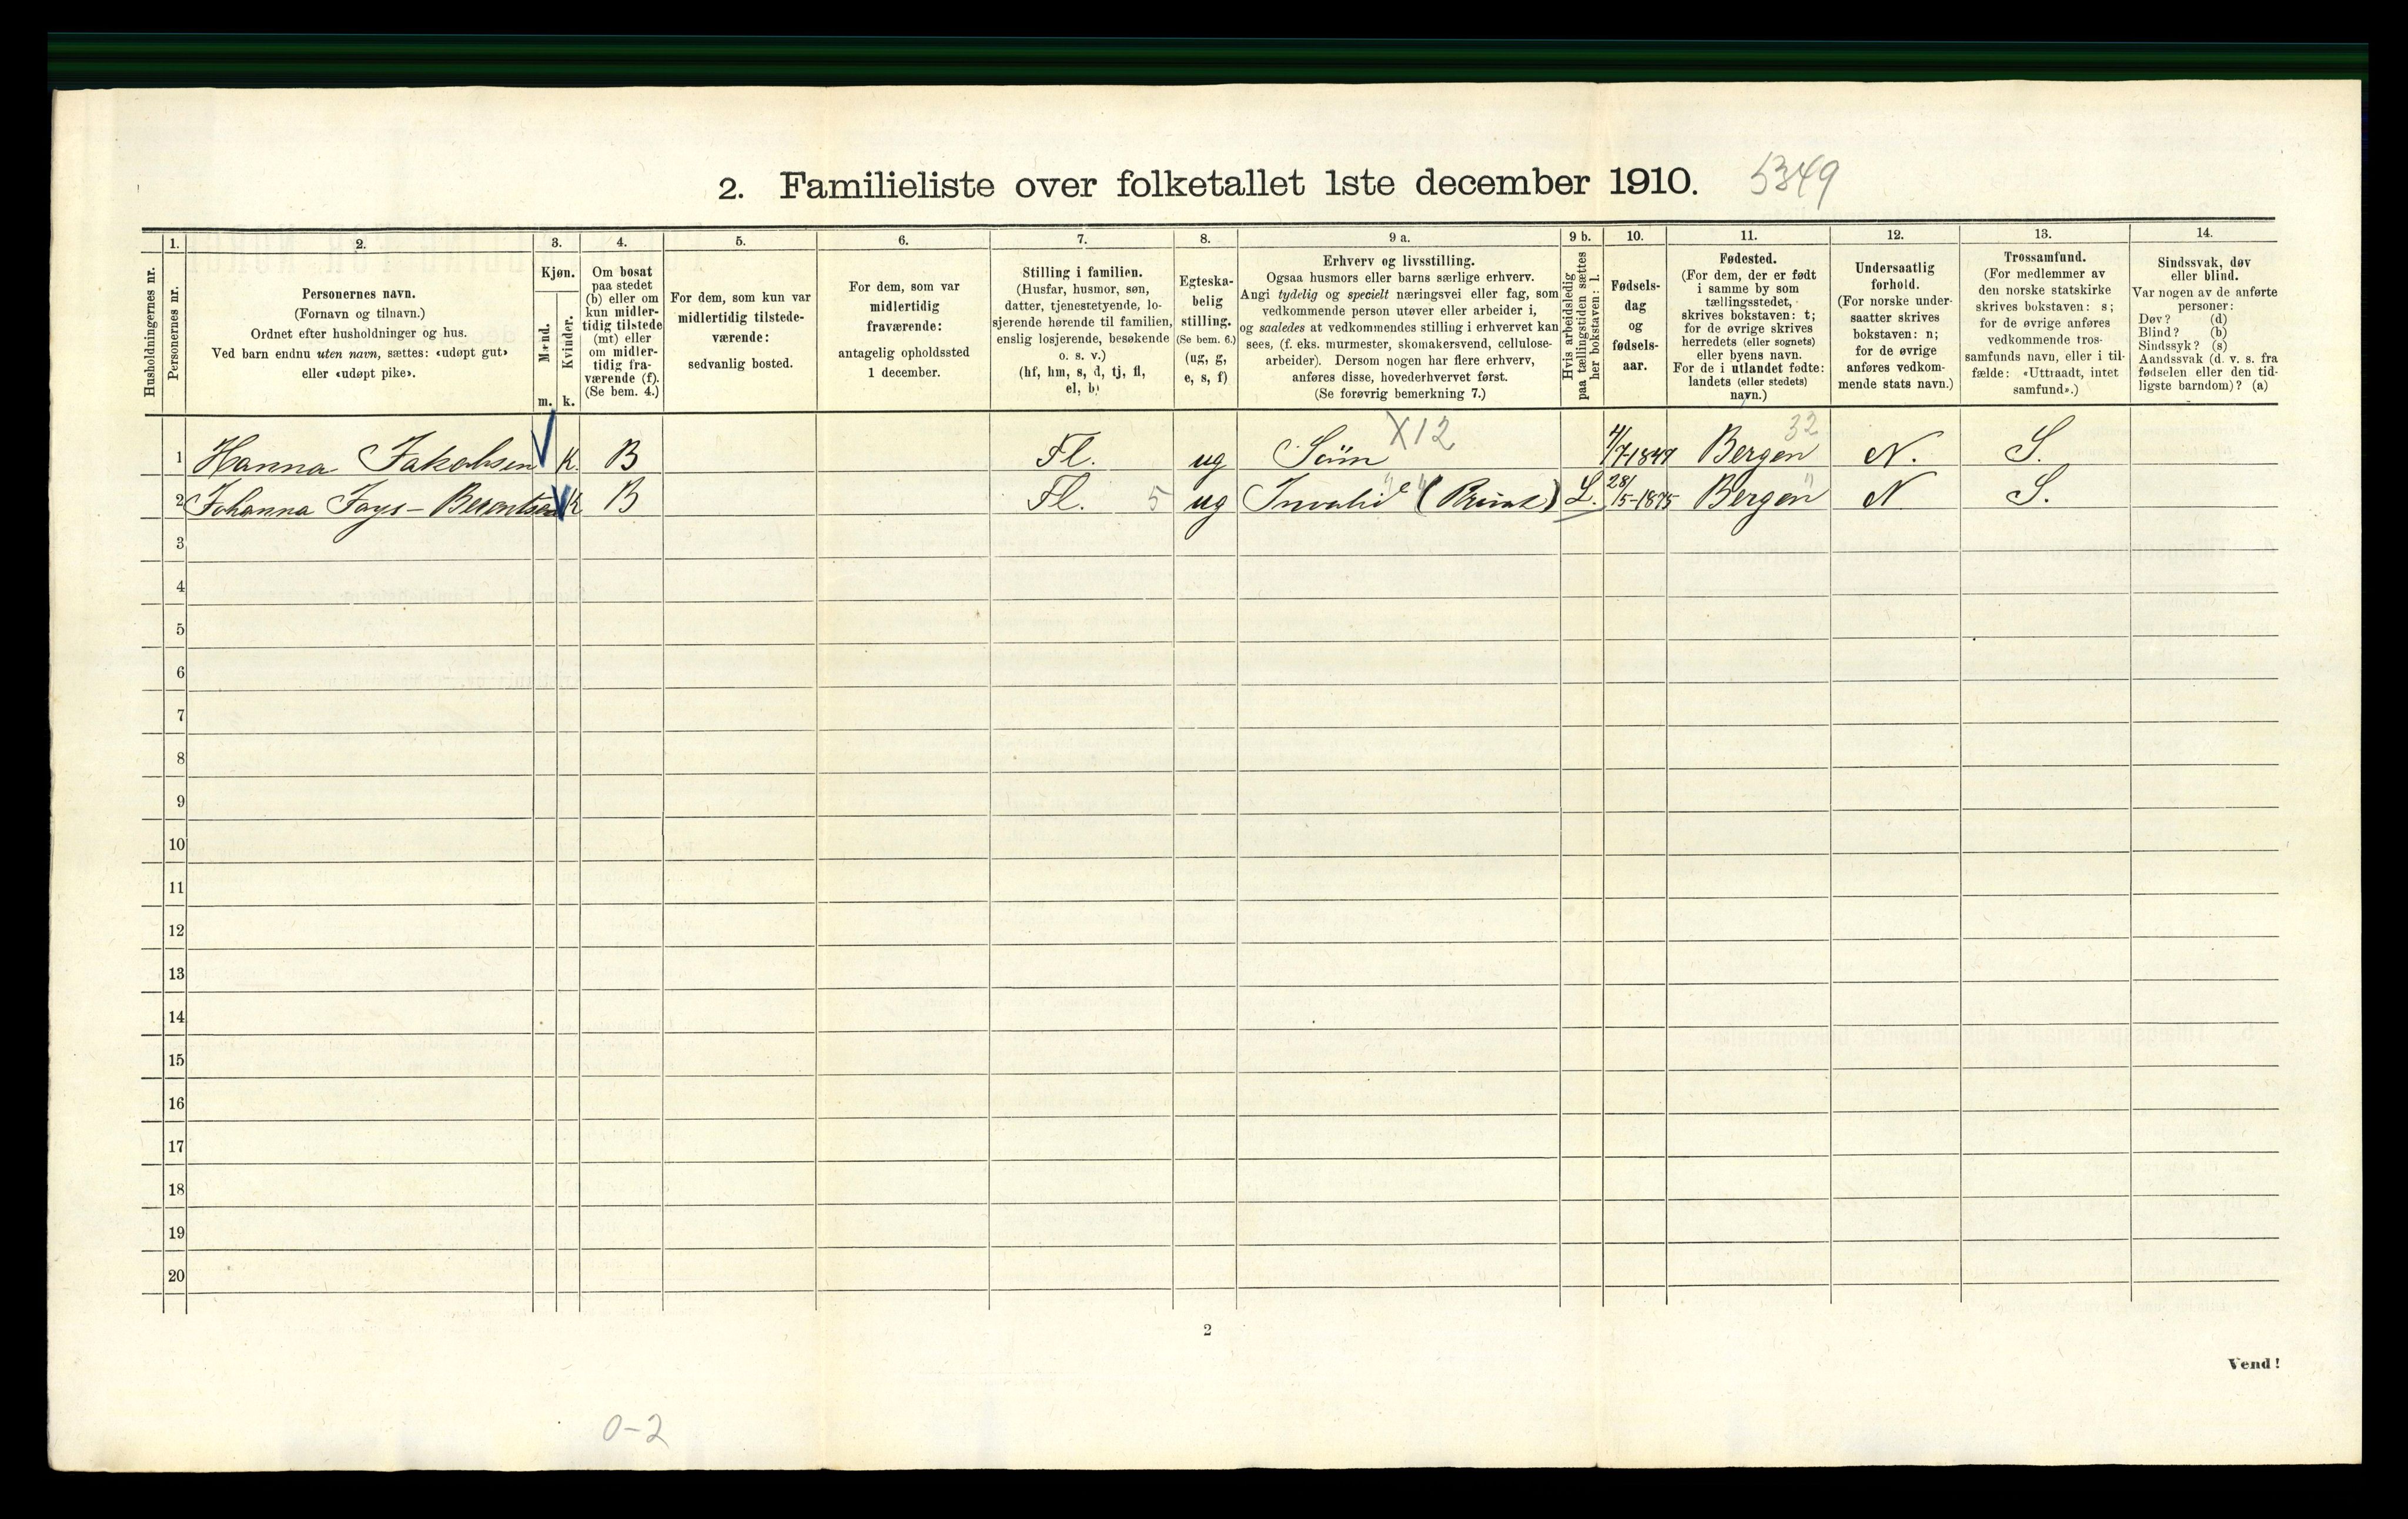 2. Familieliste over folketallet 1ste december 1910. 5349
Husholdningernes nr.
1.
Personernes nr.
2.
Personernes navn.
(Fornavn og tilnavn.)
Ordnet efter husholdninger og hus.
Ved barn endnu uten navn, sættes: «udøpt gut»
eller «udøpt pike».
3.
Kjøn.
Mænd.
Kvinder.
m. k.
4.
Om bosat
paa stedet
(b) eller om
kun midler-
tidig tilstede
(mt) eller
om midler-
tidig fra-
værende (f).
(Se bem. 4.)
5.
For dem, som kun var
midlertidig tilstede-
værende:
sedvanlig bosted.
6.
For dem, som var
midlertidig
fraværende:
antagelig opholdssted
1 december.
7.
Stilling i familien.
(Husfar, husmor, søn,
datter, tjenestetyende, lo-
sjerende hørende til familien,
enslig losjerende, besøkende
o. s. v.)
(hf, hm, s, d, tj, fl,
el, b)
8.
Egteska-
belig
stilling.
(Se bem. 6.)
(ug, g,
e, s, f)
9 a.
Erhverv og livsstilling.
Ogsaa husmors eller barns særlige erhverv.
Angi tydelig og specielt næringsvei eller fag, som
vedkommende person utøver eller arbeider i,
og saaledes at vedkommendes stilling i erhvervet kan
sees, (f. eks. murmester, skomakersvend, cellulose-
arbeider). Dersom nogen har flere erhverv,
anføres disse, hovederhvervet først.
(Se forøvrig bemerkning 7.)
9 b.
Hvis arbeidsledig
paa tællingstiden sættes
her bokstaven: l.
10.
Fødsels-
dag
og
fødsels-
aar.
11.
Fødested.
(For dem, der er født
i samme by som
tællingsstedet,
skrives bokstaven: t;
for de øvrige skrives
herredets (eller sognets)
eller byens navn.
For de i utlandet fødte:
landets (eller stedets)
navn.)
12.
Undersaatlig
forhold.
(For norske under-
saatter skrives
bokstaven: n;
for de øvrige
anføres vedkom-
mende stats navn.)
13.
Trossamfund.
(For medlemmer av
den norske statskirke
skrives bokstaven: s;
for de øvrige anføres
vedkommende tros-
samfunds navn, eller i til-
fælde: «Uttraadt, intet
samfund».)
14.
Sindssvak, døv
eller blind.
Var nogen av de anførte
personer:
Døv? (d)
Blind? (b)
Sindssyk? (s)
Aandssvak (d. v. s. fra
fødselen eller den tid-
ligste barndom)? (a)
X12 32
1 Hanna Jakobsen K. B Fl. ug Söm 4/7-1847 Bergen N. S.
2 Johanna Fays-Berentsen K B Fl. 5 ug Invalid (Privat) L. 28/5-1875 Bergen N S.
3
4
5
6
7
8
9
10
11
12
13
14
15
16
17
18
19
20
2
Vend!
0-2